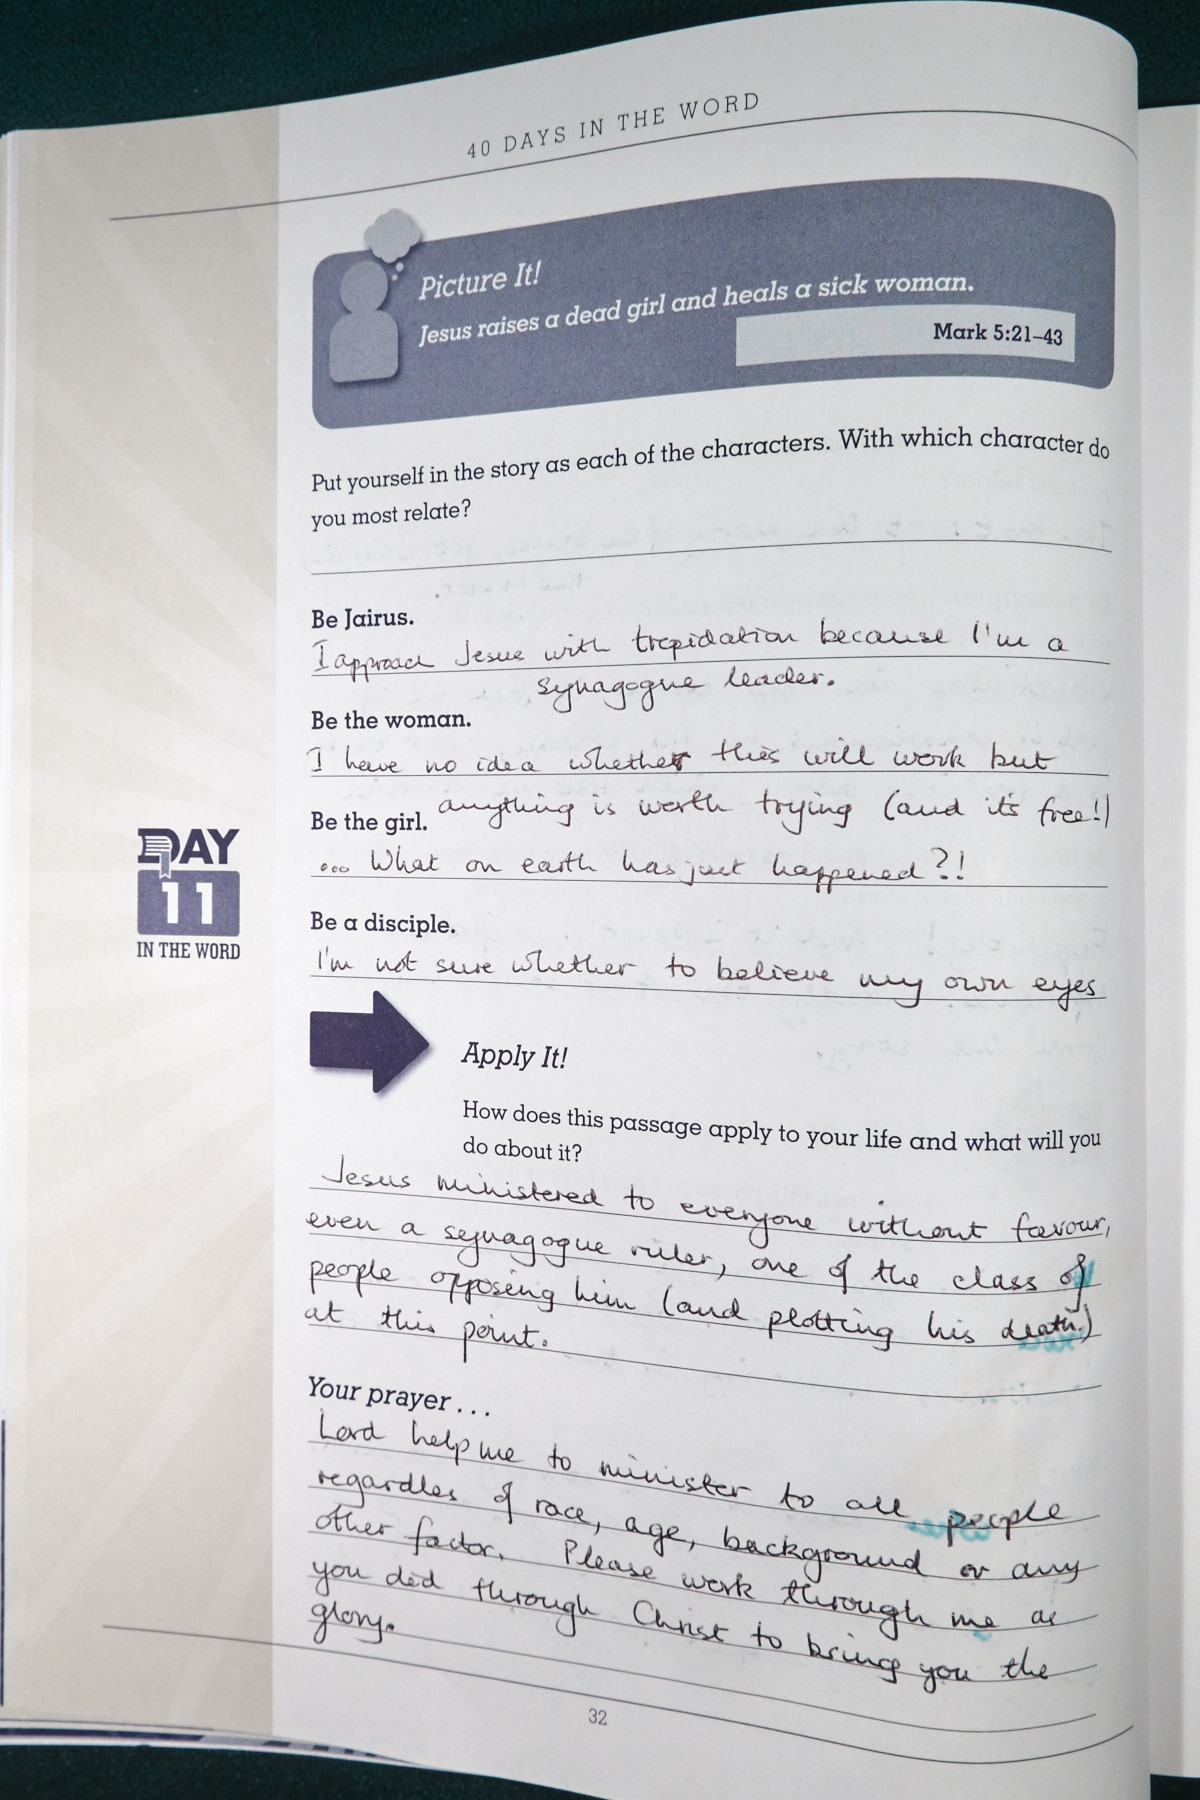 40 DAYS IN THE WORD
Picture It!
Jesus raises a dead girl and heals a sick woman.
Mark 5:21–43
Put yourself in the story as each of the characters. With which character do
you most relate?
Be Jairus.
I approach Jesus with trepidation because I'm a
synagogue leader.
Be the woman.
I have no idea whether this will work but
anything is worth trying (and it's free!)
Be the girl.
... What on earth has just happened?!
Be a disciple.
I'm not sure whether to believe my own eyes
DAY
11
IN THE WORD
Apply It!
How does this passage apply to your life and what will you
do about it?
Jesus ministered to everyone without favour,
even a synagogue ruler, one of the class of
people opposing him (and plotting his death.)
at this point.
Your prayer . . .
Lord help me to minister to all people
regardles of race, age, background or any
other factor. Please work through me as
you did through Christ to bring you the
glory.
32